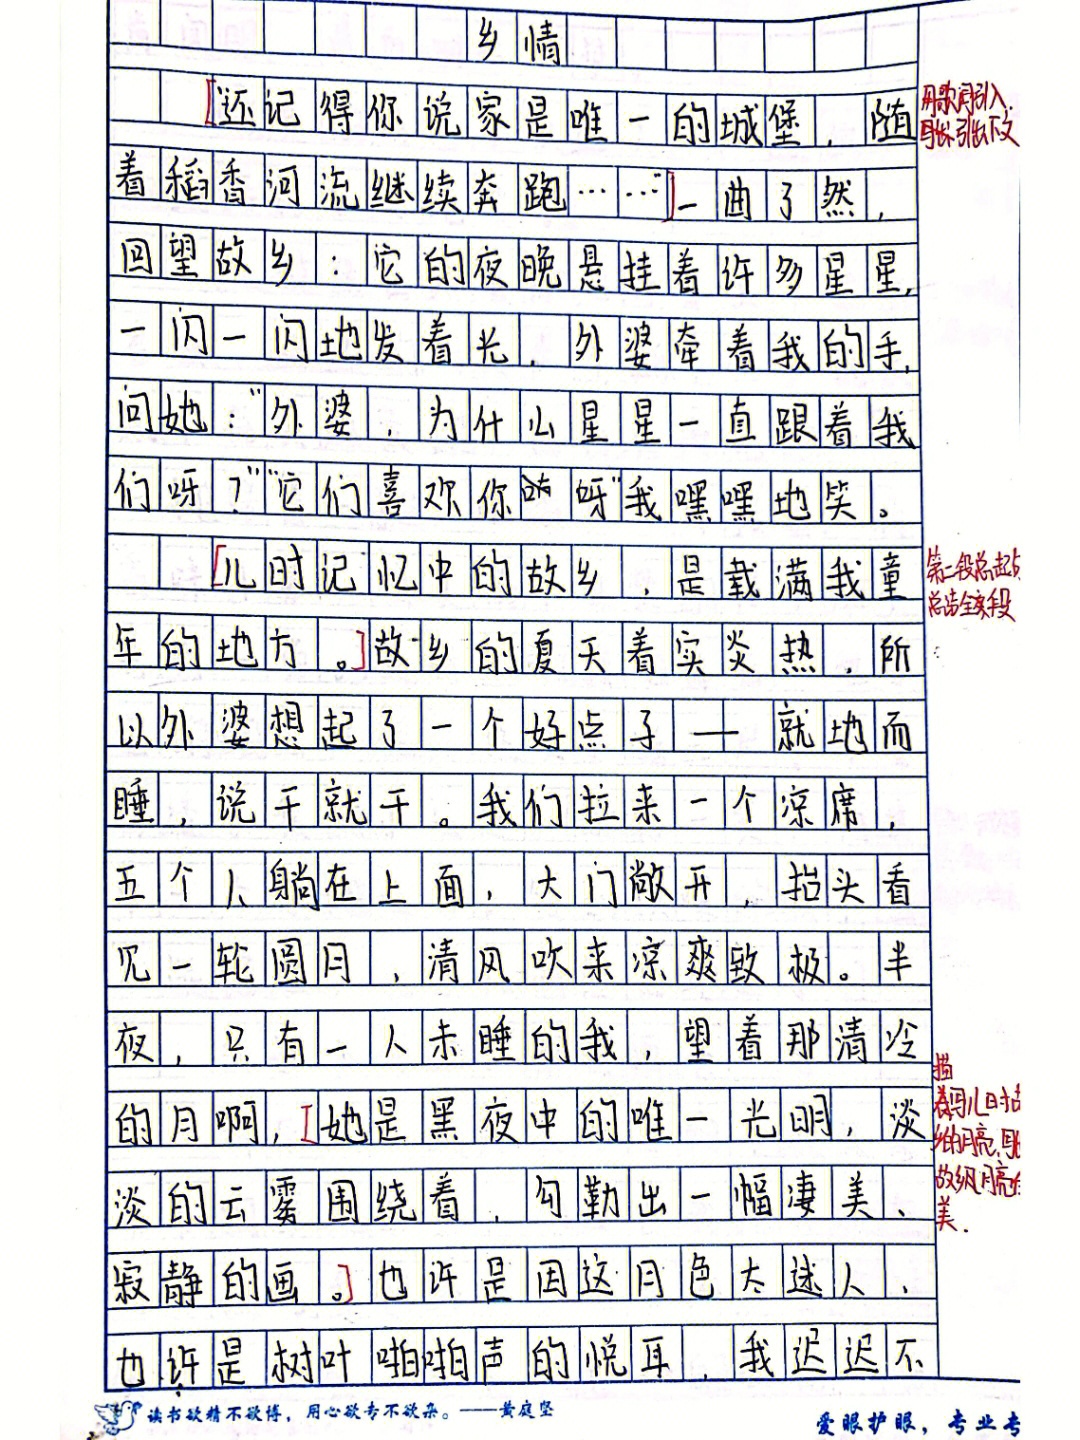 乡情
还记得你说家是唯一的城堡，随
着稻香河流继续奔跑……"一曲了然，
回望故乡：它的夜晚悬挂着许多星星，
一闪一闪地发着光，外婆牵着我的手，
问她："外婆，为什么星星一直跟着我
们呀？""它们喜欢你呀"我嘿嘿地笑。
儿时记忆中的故乡，是载满我童
年的地方。故乡的夏天着实炎热，所
以外婆想起了一个好点子——就地而
睡，说干就干。我们拉来一个凉席，
五个人躺在上面，大门敞开，抬头看
见一轮圆月，清风吹来凉爽致极。半
夜，只有一人未睡的我，望着那清冷
的月啊，她是黑夜中的唯一光明，淡
淡的云雾围绕着，勾勒出一幅凄美、
寂静的画。也许是因这月色太迷人、
也许是树叶啪啪声的悦耳，我迟迟不
用歌词引入，
引出下文
第二段总起句
总结全段
描
写儿时故
乡的月亮，
故乡月亮
美．
读书欲精不欲博，用心欲专不欲杂。——黄庭坚
爱眼护眼，专业专